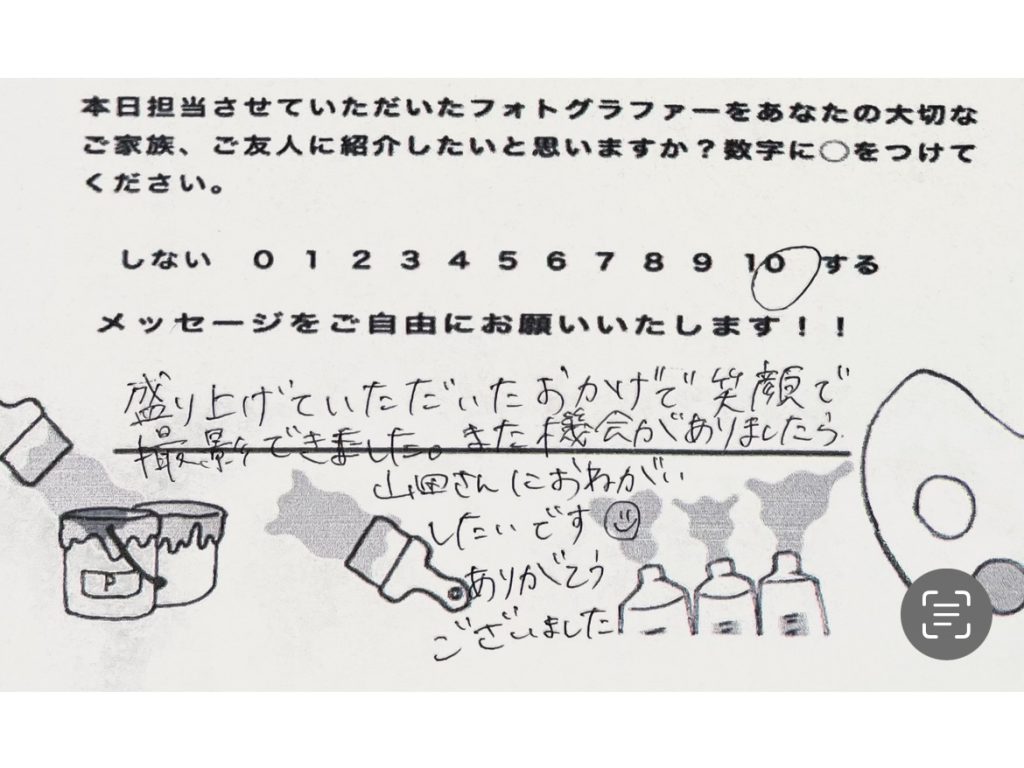 本日担当させていただいたフォトグラファーをあなたの大切な
ご家族、ご友人に紹介したいと思いますか？数字に○をつけて
ください。
しない 0 1 2 3 4 5 6 7 8 9 10 する
メッセージをご自由にお願いいたします！！
盛り上げていただいたおかげで笑顔で
撮影できました。また機会がありましたら
山田さんにおねがい
したいです
ありがとう
ございました
P